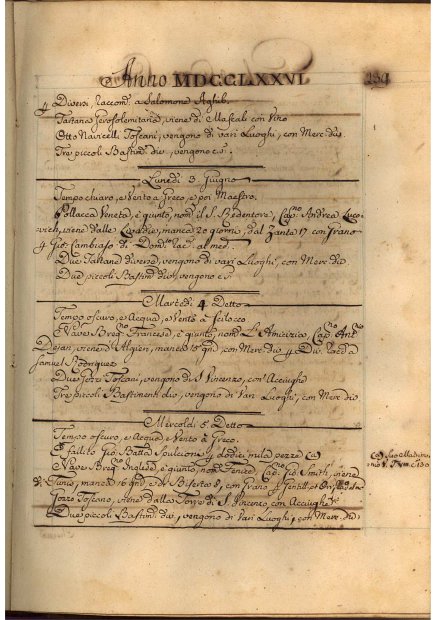 Anno MDCCLXXVI. 239
Diversi, Raccom. a Salomone Aghib.
Tartana Gerosolemitana, viene di Mascali con Vino
Otto Navicelli Toscani, vengono di vari Luoghi, con Merc. div
Tre piccoli Bastim. div, vengono c. s.
Lunedi 3 Giugno
Tempo chiaro, e Vento a Greco, e poi Maestro.
Pollacca Veneta, è giunto, nom. il S. Redentore, Cap.no Andrea
viene dalle manca 20 giorni, e dal Zante 17 con Grano
Gio: Cambiaso di Dom. Rac. al med.
Due Tartane diverse, vengono di vari Luoghi, con Merc. div
Due piccoli Bastim. div, vengono c. s.
Martedi 4 Detto
Tempo oscuro, e Acqua, e Vento a Scilocco.
Nave Francese, è giunto, nom. L'Amicizia Cap.no Ant.no
Dejan, viene d'Algieri, manca 15 gni, con Merc. div Div. Racc. a
Samuel Rodriguez
Due Gozzi Toscani, vengono di S. Vincenzo, con Acciughe
Tre piccoli Bastimenti div, vengono di Vari Luoghi, con Merc. div
Mercoldi 5 Detto
Tempo oscuro, e Acqua, e Vento a Greco.
È fallito Gio: Batta dodici mila pezze (a)
Nave Inglese, è giunto, nom. Fenice Cap. Gid. Smith, viene
di Tunis, manca 16 gni, e da Biserta 8, con Grano
Gozzo Toscano, viene dalla Torre di S. Vincenzo con Acciughe
Due piccoli Bastim. div, vengono di Vari Luoghi, con Merc. div
(a)